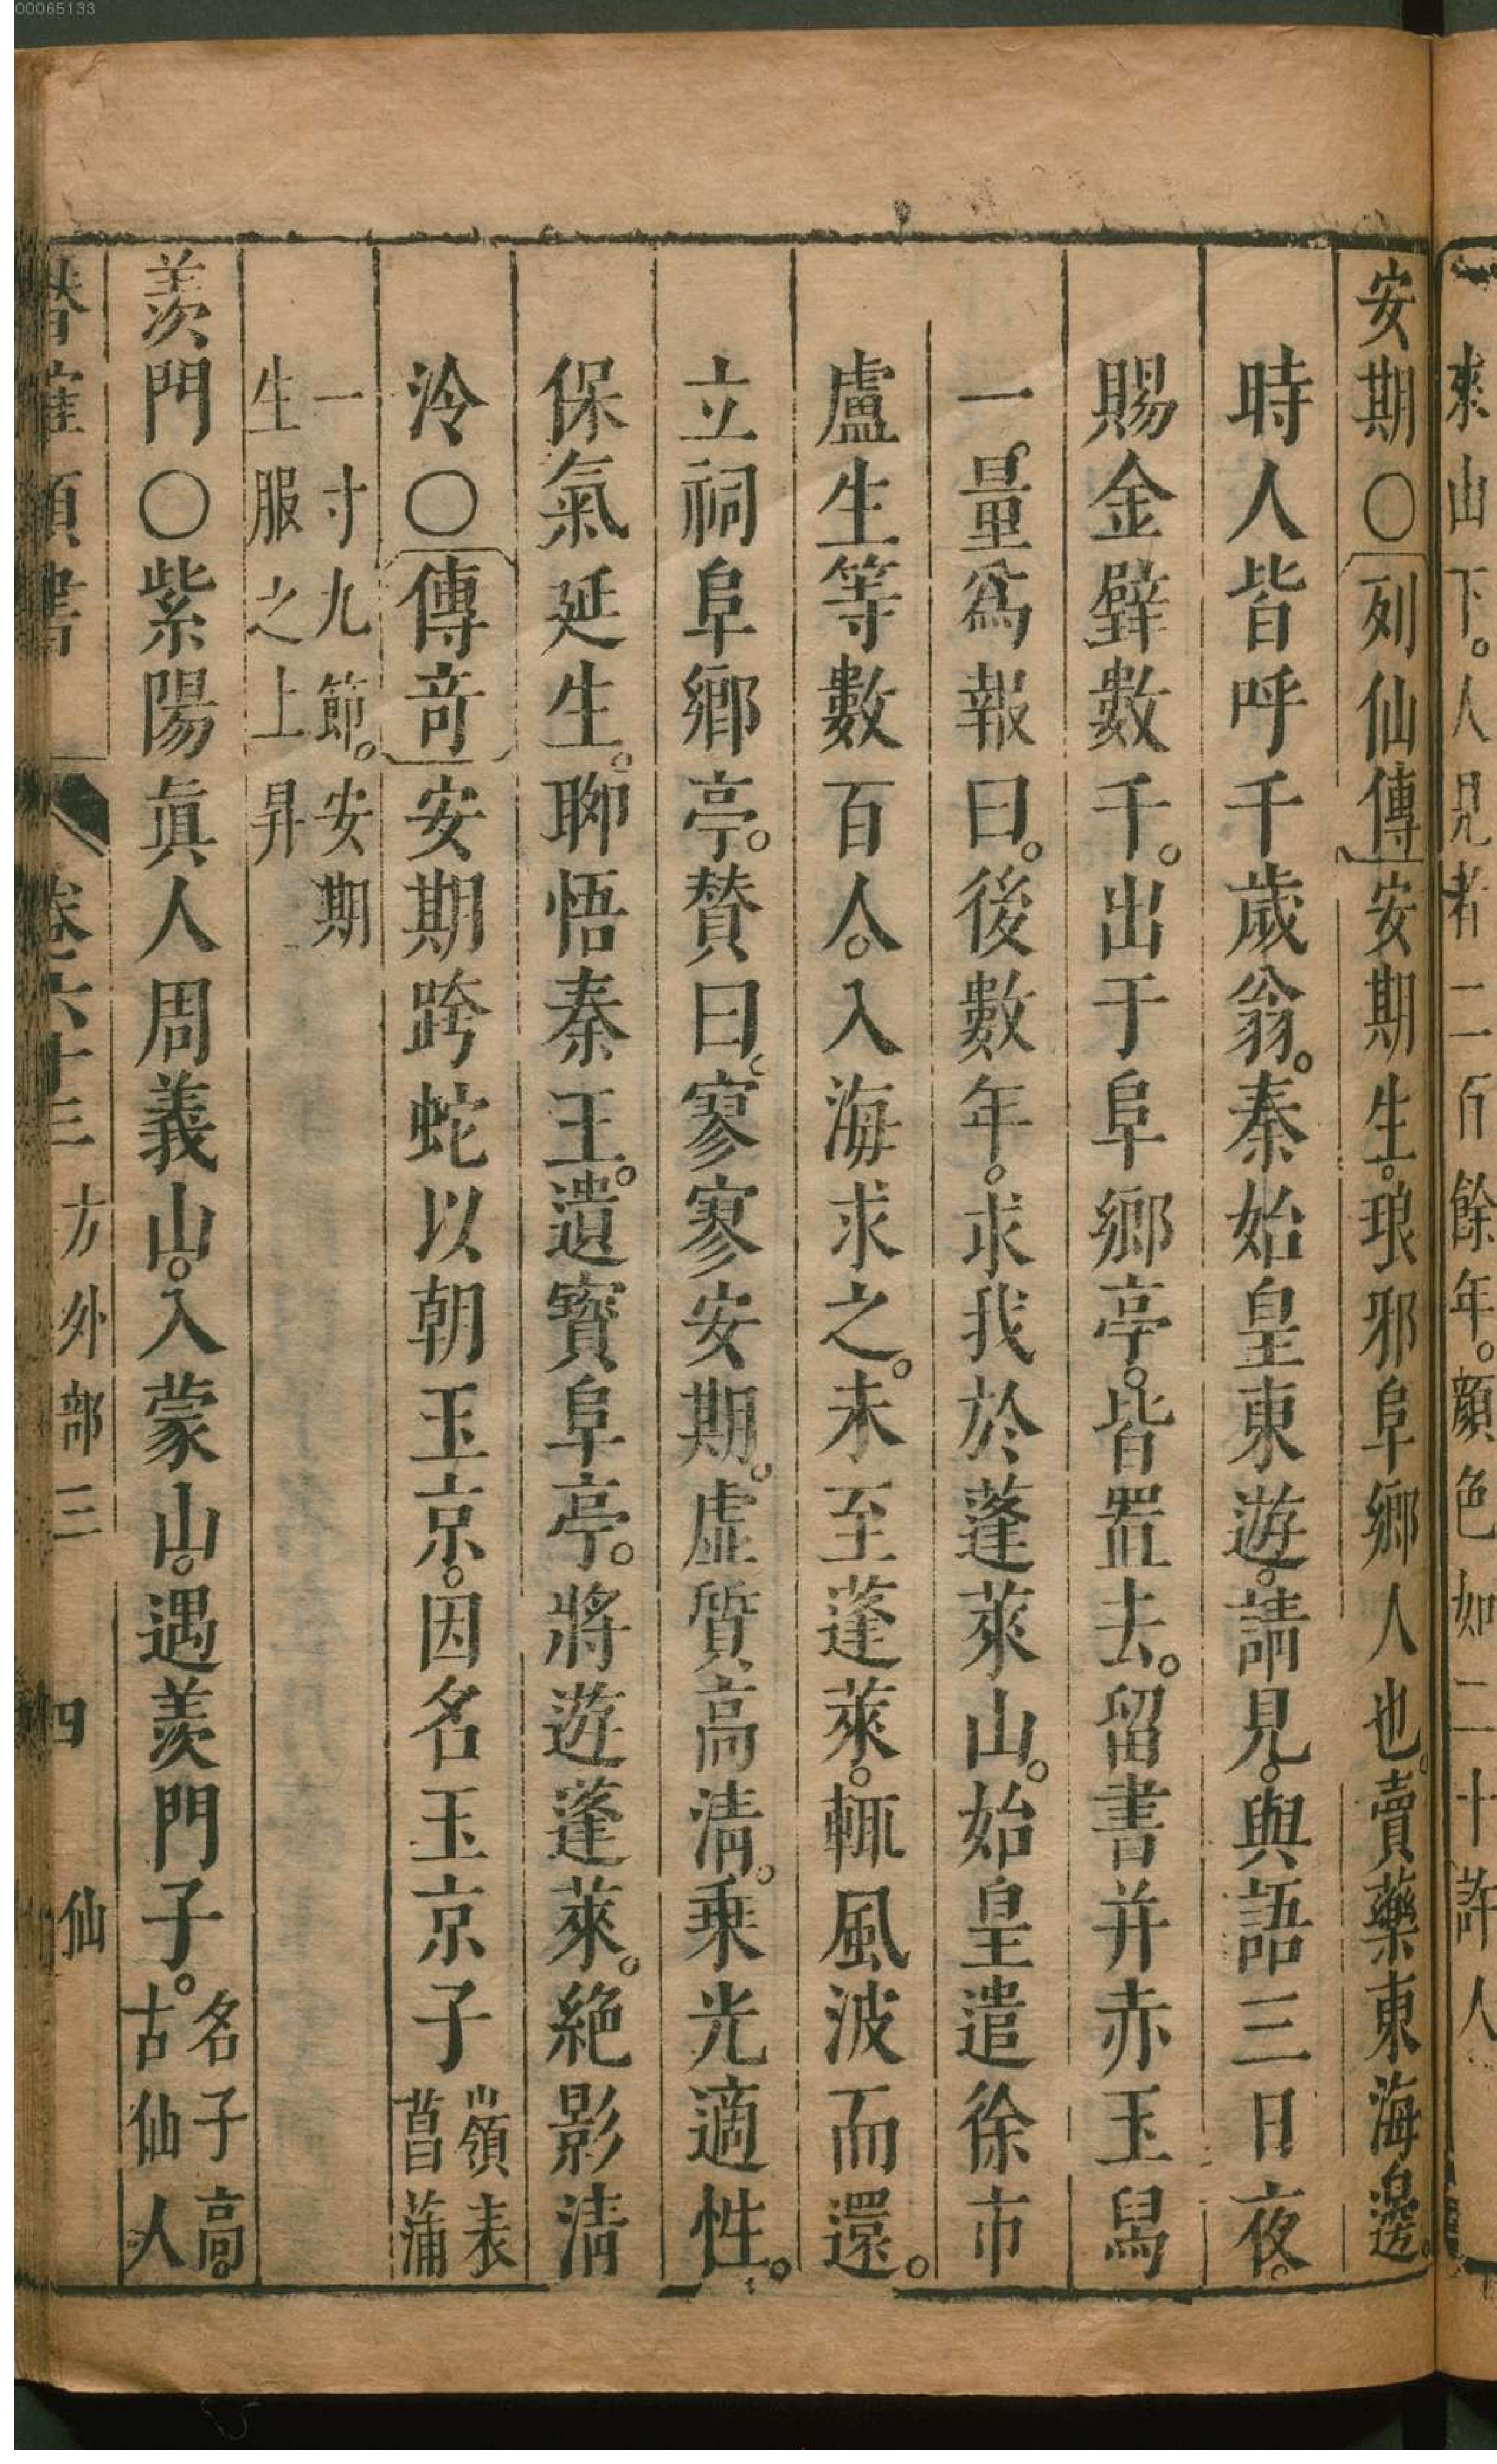 00065133
來山下。人見者二百餘年。顏色如二十許人
安期〇列仙傳安期生。琅邪阜鄉人也。賣藥東海邊。
時人皆呼千歲翁。秦始皇東遊。請見。與語三日夜。
賜金璧數千。出于阜鄉亭。皆置去。留書并赤玉舄
一量爲報曰。後數年。求我於蓬萊山。始皇遣徐市
盧生等數百人。入海求之。未至蓬萊。輒風波而還。
立祠阜鄉亭。賛曰。寥寥安期。虛質高清。乗光適性。
保氣延生。聊悟秦王。遺寶阜亭。將遊蓬萊。絶影清
泠〇傳竒安期跨蛇以朝玉京。因名玉京子山嶺表
菖蒲
一寸九節。安期
生服之上昇
羨門〇紫陽眞人周義山。入蒙山。遇羨門子。名子高。
古仙人
類書 卷六十三 方外部三 四 仙